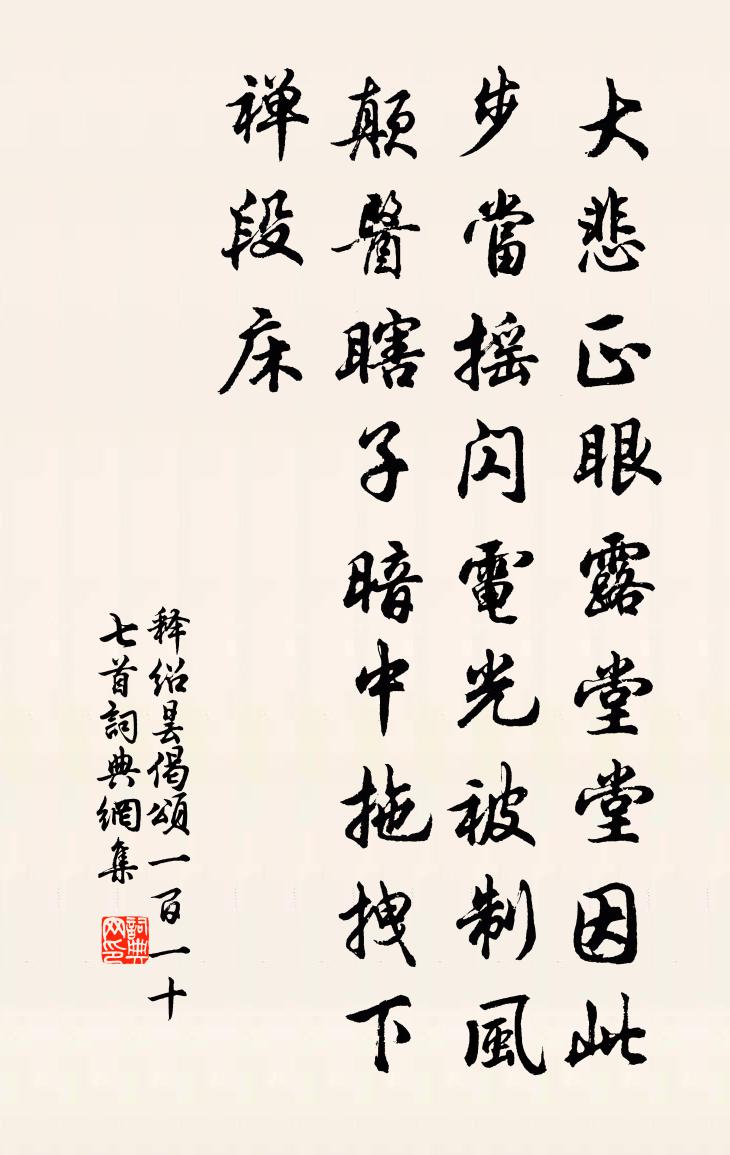 大悲正眼露堂堂因此
步當搖閃電光被制風
顛醫瞎子暗中拖拽下
禅段床
释绍昙偈頌一百一十
七首詞典網集
詞典网印